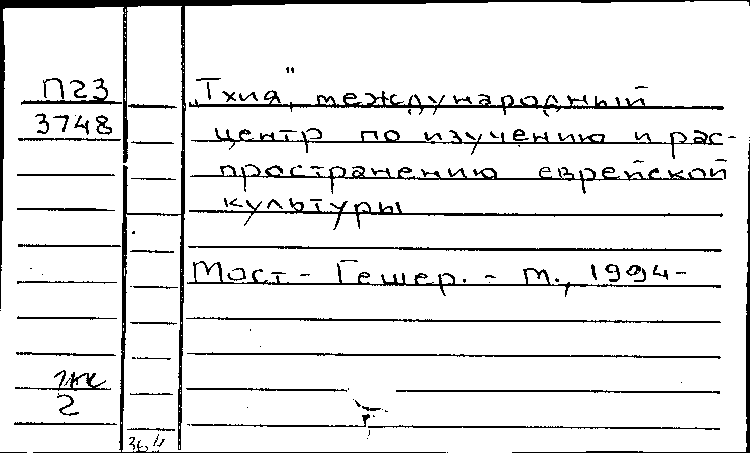 П23
3748
„Тхия", международный
центр по изучению и рас-
пространению еврейской
культуры
Мост - Гешер. - М., 1994-
2